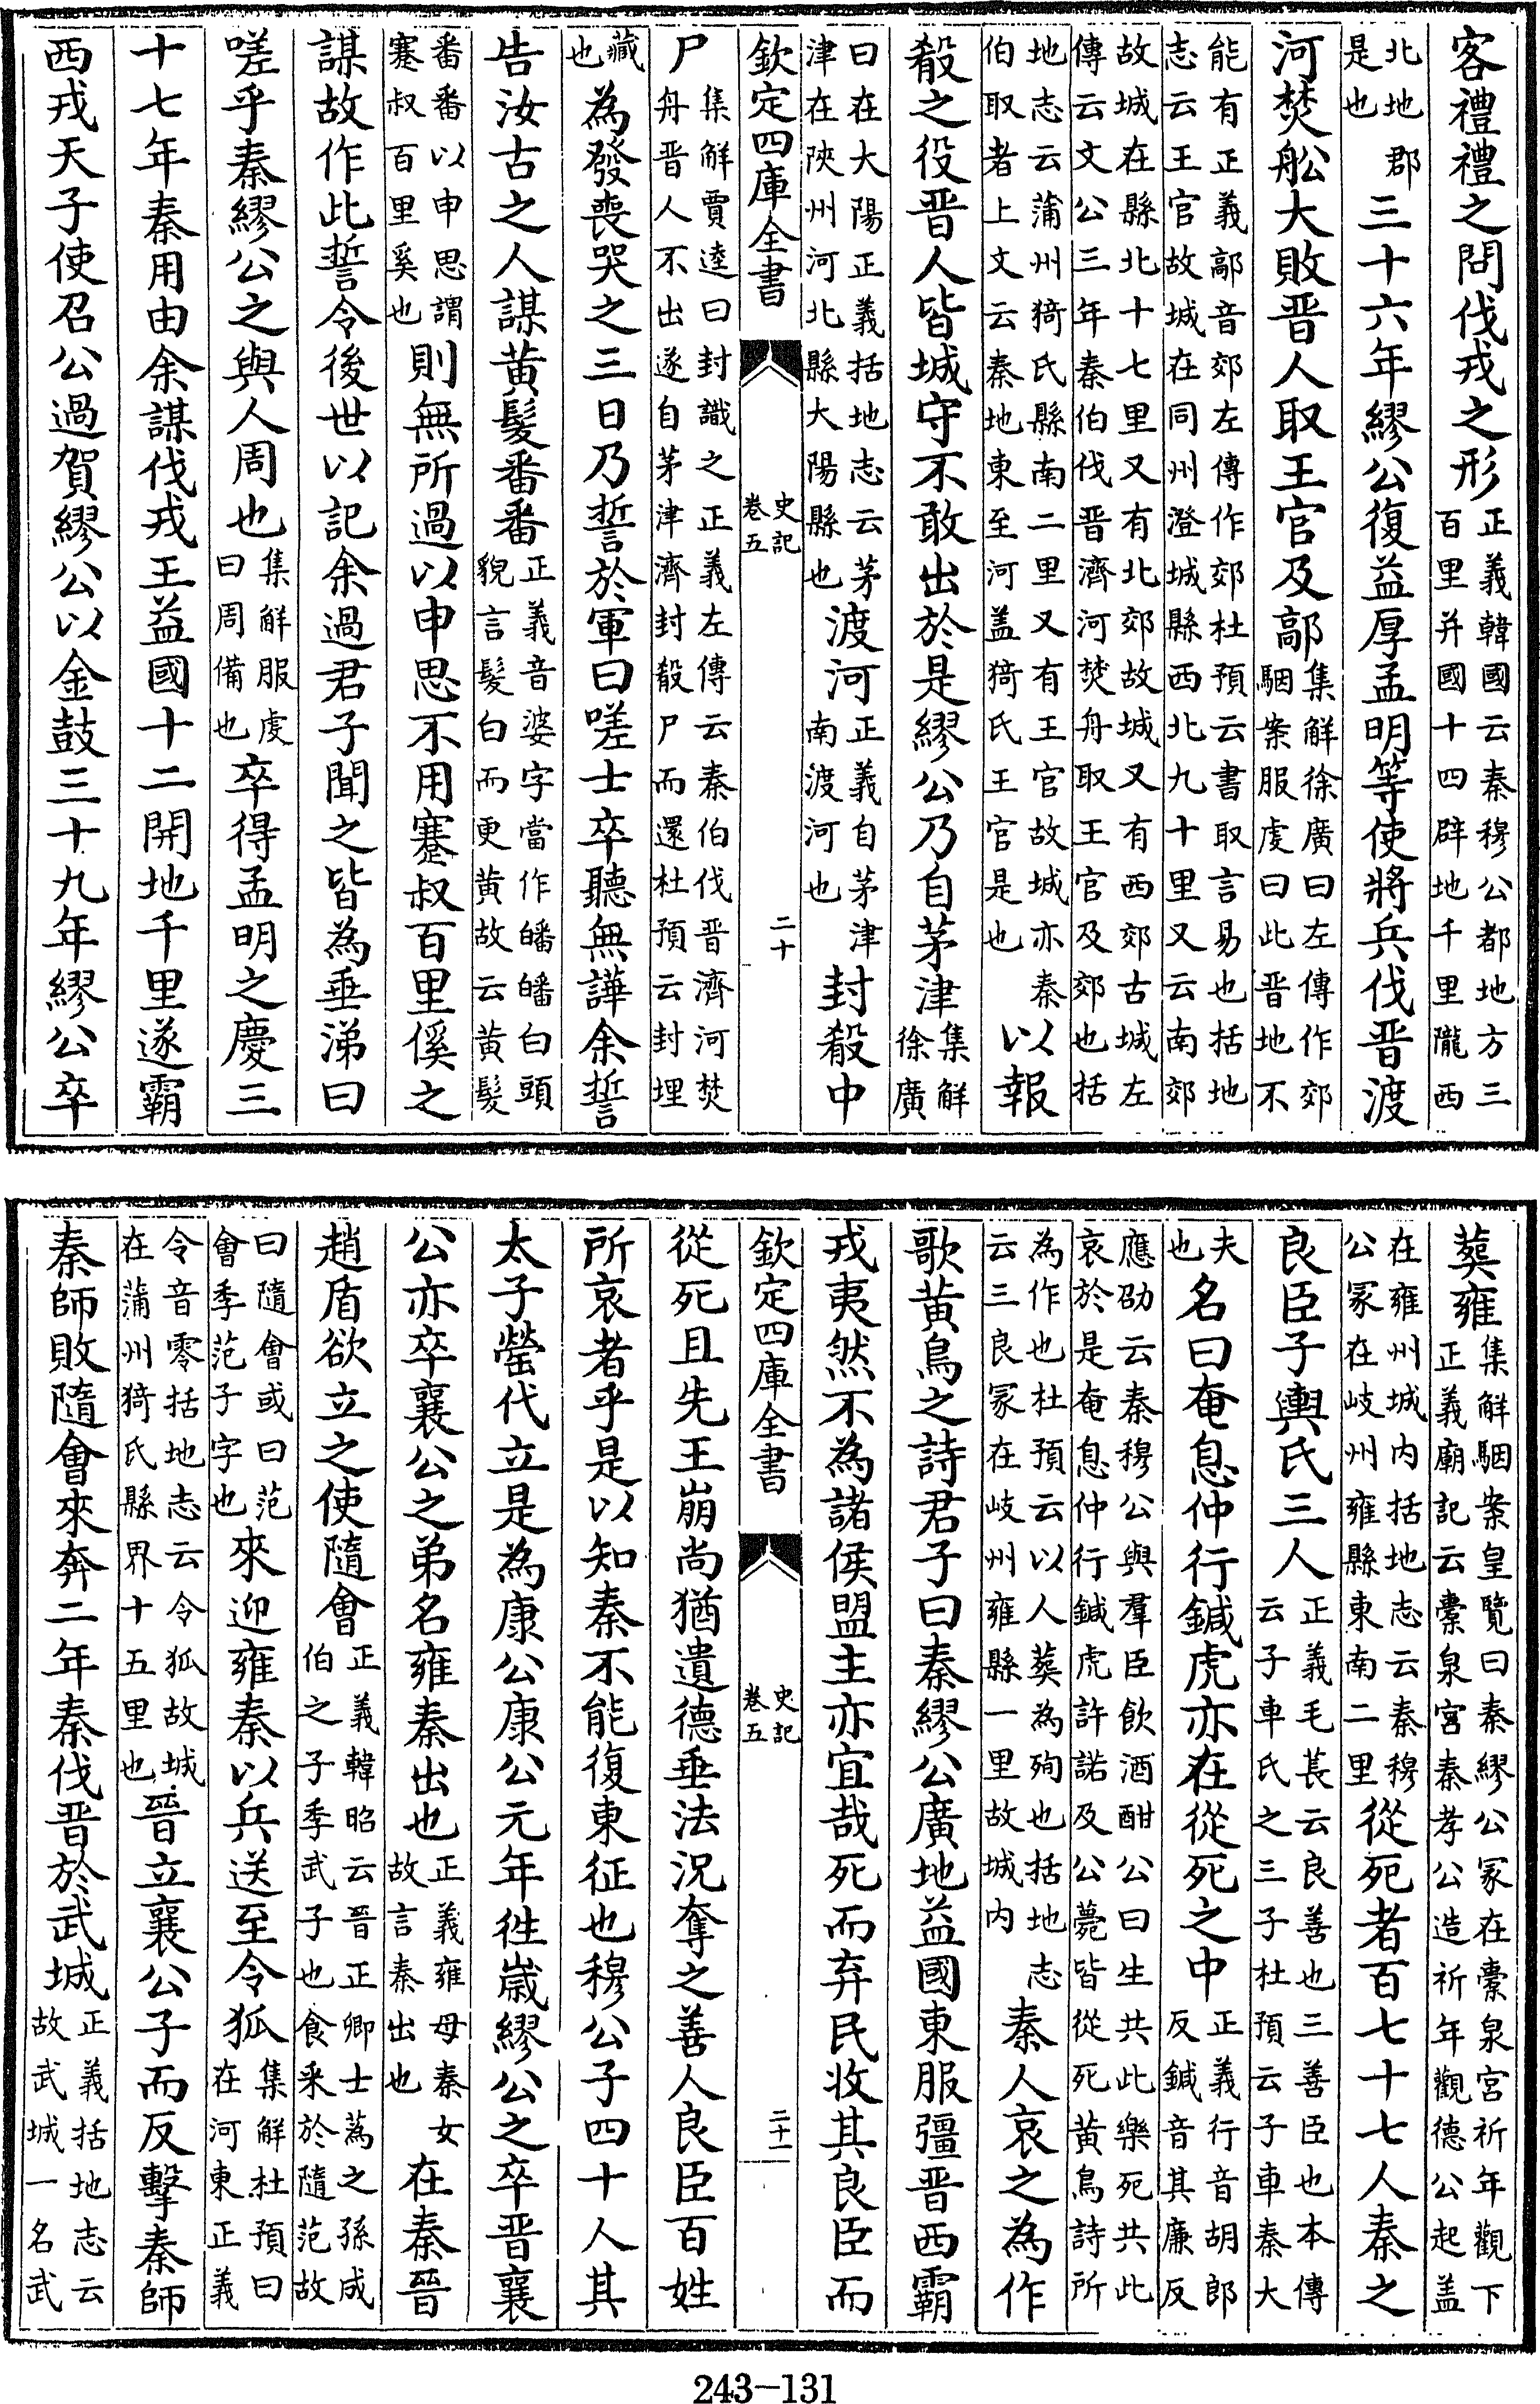 客禮禮之問伐戎之形正義韓國云秦穆公都地方三百里并國十四辟地千里隴西
北地郡是也三十六年繆公復益厚孟明等使將兵伐晉渡
河焚舩大敗晉人取王官及鄗集解徐廣曰左傳作郊駰案服虔曰此晉地不
能有正義鄗音郊左傳作郊杜預云書取言易也括地志云王官故城在同州澄城縣西北九十里又云南郊
故城在縣北十七里又有北郊故城又有西郊古城左傳云文公三年秦伯伐晉濟河焚舟取王官及郊也括
地志云蒲州猗氏縣南二里又有王官故城亦秦伯取者上文云秦地東至河盖猗氏王官是也以報
殽之役晉人皆城守不敢出於是繆公乃自茅津集解徐廣
曰在大陽正義括地志云茅津在陜州河北縣大陽縣也渡河正義自茅津南渡河也封殽中
欽定四庫全書 史記卷五 二十
尸集解賈逵曰封識之正義左傳云秦伯伐晉濟河焚舟晉人不出遂自茅津濟封殽尸而還杜預云封埋
藏也為發喪哭之三日乃誓於軍曰嗟士卒聽無譁余誓
告汝古之人謀黃髮番番正義音婆字當作皤皤白頭貌言髮白而更黃故云黃髮
番番以申思謂蹇叔百里奚也則無所過以申思不用蹇叔百里傒之
謀故作此誓令後世以記余過君子聞之皆為垂涕曰
嗟乎秦繆公之與人周也集解服虔曰周備也卒得孟明之慶三
十七年秦用由余謀伐戎王益國十二開地千里遂霸
西戎天子使召公過賀繆公以金鼓三十九年繆公卒
葬雍集解駰案皇覽曰秦繆公冢在橐泉宮祈年觀下正義廟記云橐泉宮秦孝公造祈年觀德公起盖
在雍州城内括地志云秦穆公冢在岐州雍縣東南二里從死者百七十七人秦之
良臣子輿氏三人正義毛萇云良善也三善臣也本傳云子車氏之三子杜預云子車秦大
夫也名曰奄息仲行鍼虎亦在從死之中正義行音胡郎反鍼音其廉反
應劭云秦穆公與羣臣飲酒酣公曰生共此樂死共此哀於是奄息仲行鍼虎許諾及公薨皆從死黃鳥詩所
為作也杜預云以人葬為殉也括地志云三良冢在岐州雍縣一里故城内秦人哀之為作
歌黃鳥之詩君子曰秦繆公廣地益國東服彊晉西霸
戎夷然不為諸侯盟主亦宜哉死而弃民收其良臣而
欽定四庫全書 史記卷五 二十一
從死且先王崩尚猶遺德垂法況奪之善人良臣百姓
所哀者乎是以知秦不能復東征也穆公子四十人其
太子罃代立是為康公康公元年徃歲繆公之卒晉襄
公亦卒襄公之弟名雍秦出也正義雍母秦女故言秦出也在秦晉
趙盾欲立之使隨會正義韓昭云晉正卿士蔿之孫成伯之子季武子也食采於隨范故
曰隨會或曰范會季范子字也來迎雍秦以兵送至令狐集解杜預曰在河東正義
令音零括地志云令狐故城在蒲州猗氏縣界十五里也晉立襄公子而反擊秦師
秦師敗隨會來奔二年秦伐晉於武城正義括地志云故武城一名武
243-131